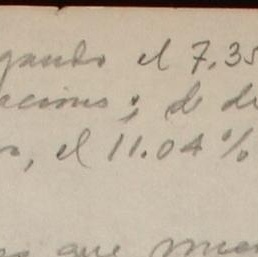 gando el 7.35
aciones; d de
o, el 11.04%
que